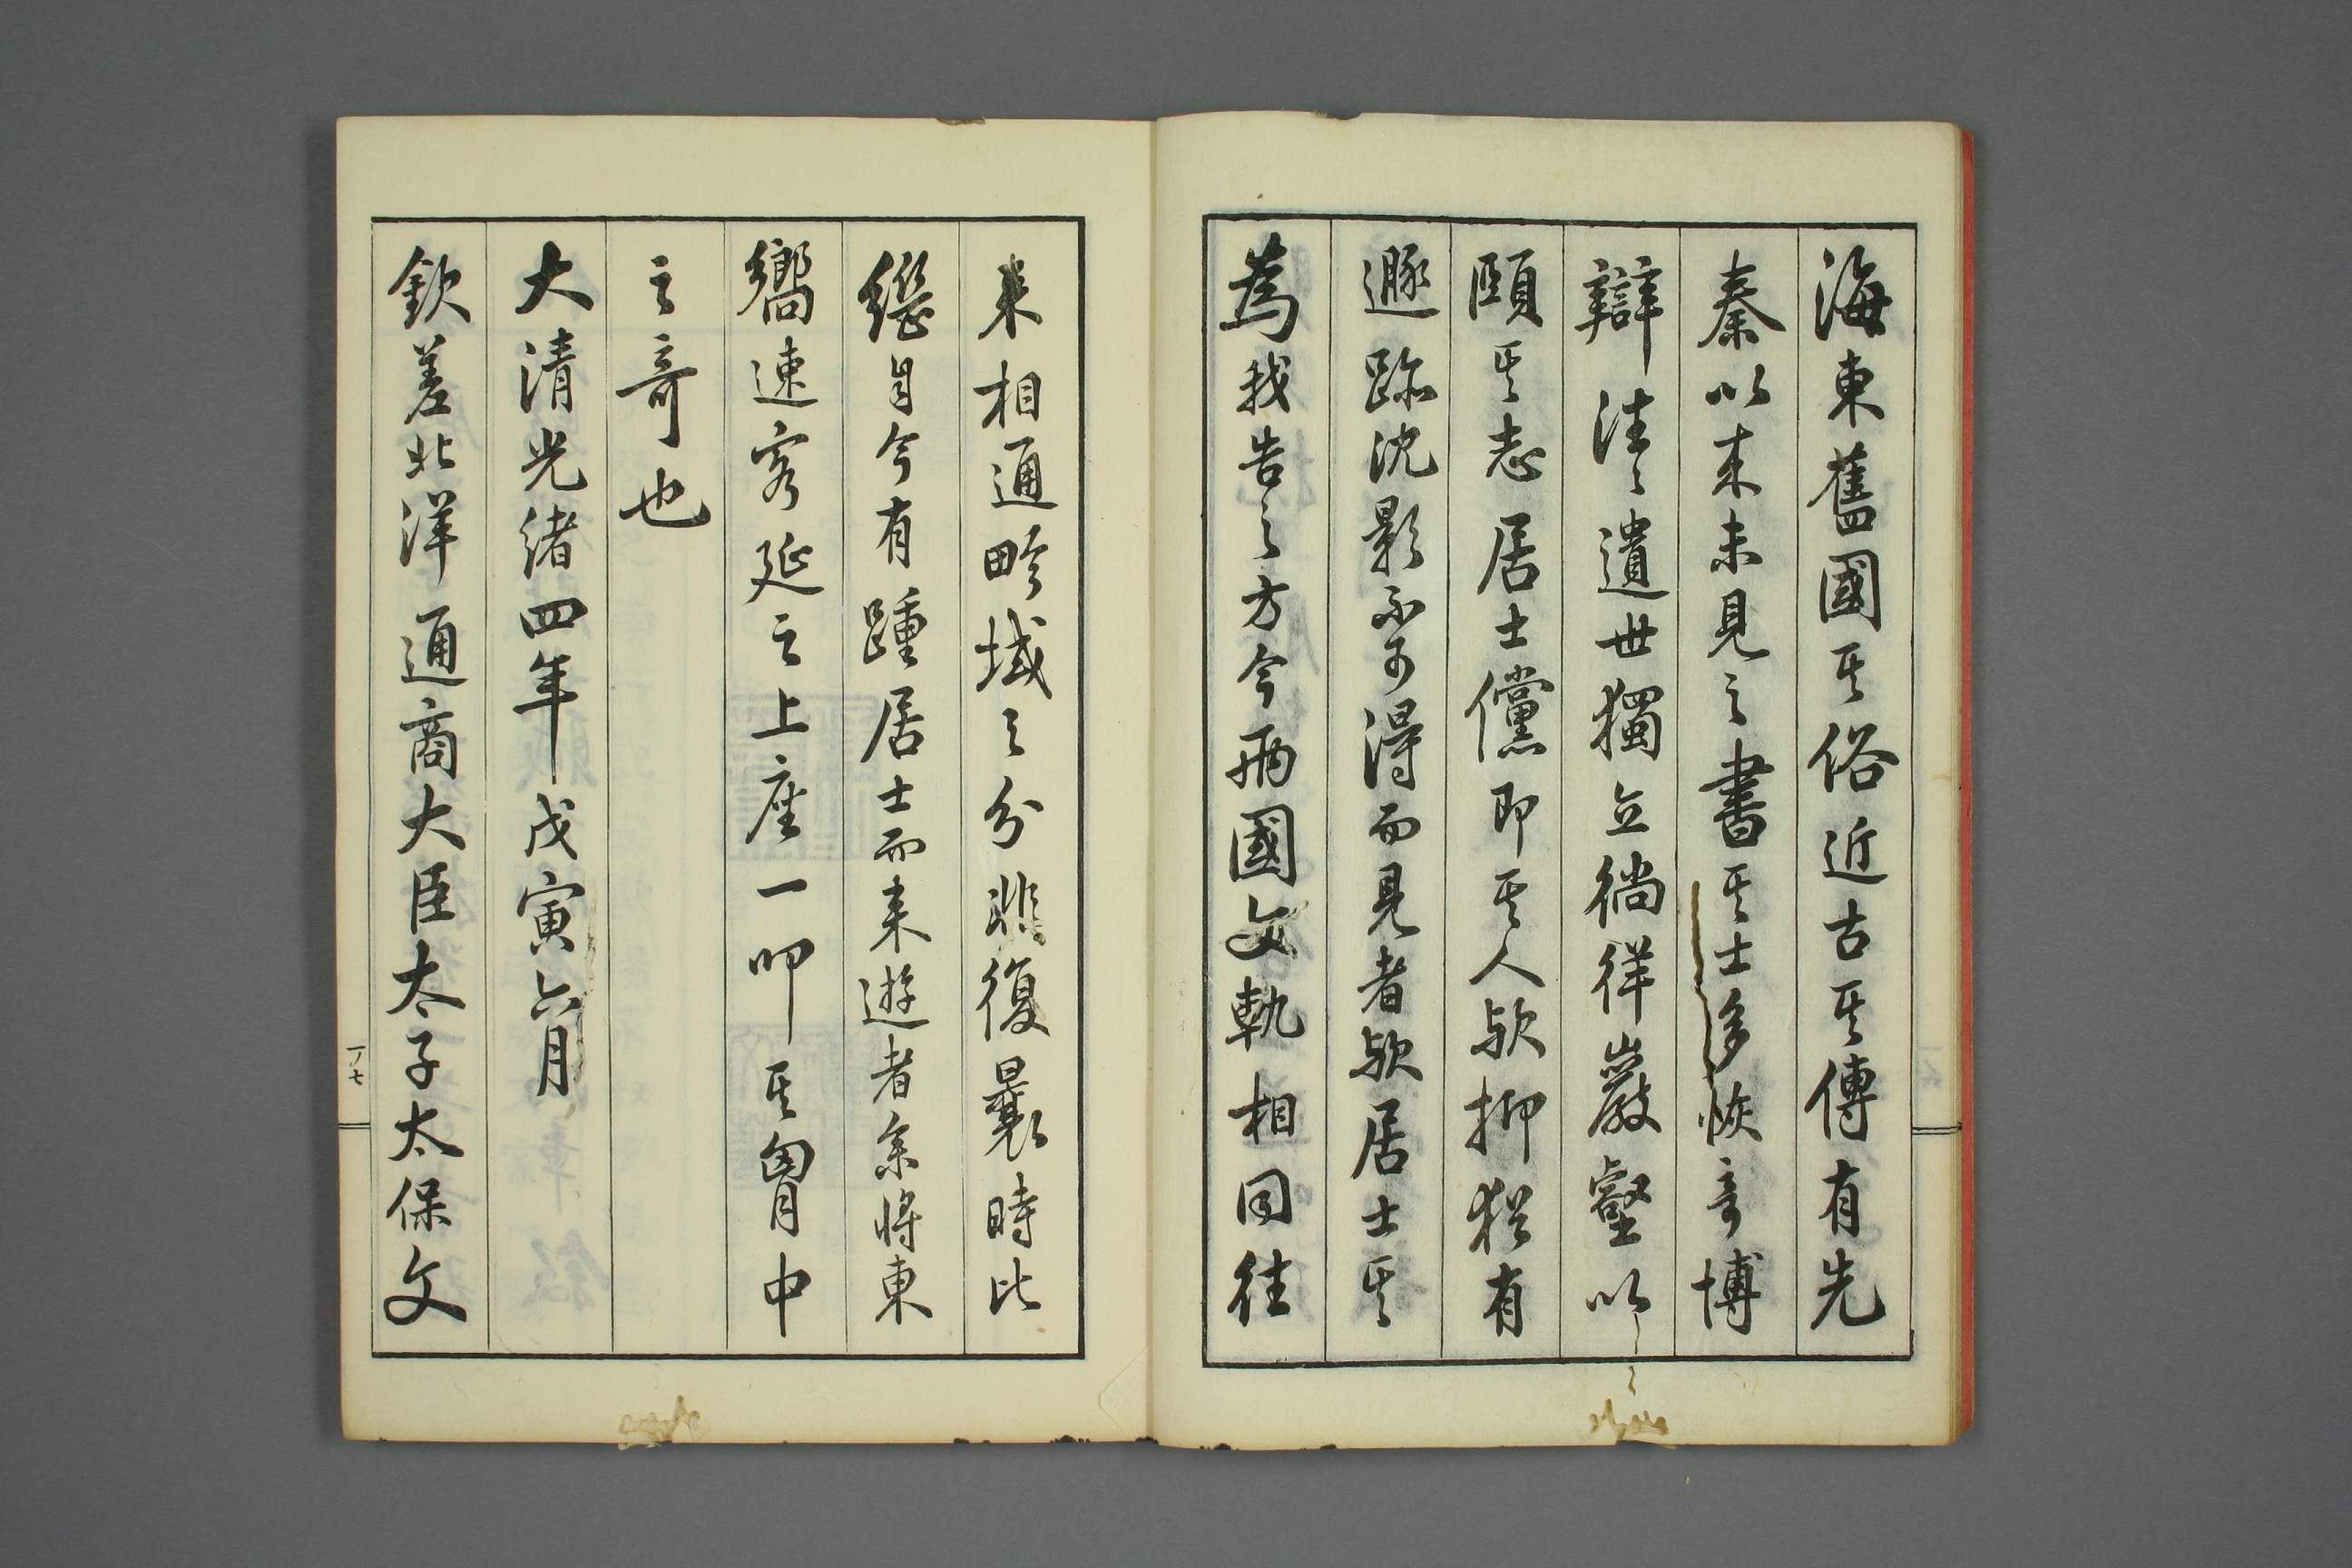 海東舊國其俗近古其傳有先
秦以來未見之書其士多恢奇博
辯往々遺世獨立徜徉巖壑以
頤其志居士儻即其人歟抑猶有
遯跡沈影不可得而見者歟居士其
為我告之方今兩國文軌相同往
来相通畛域之分非復曩時比
繼自今有踵居士而来遊者余將東
嚮速客延之上座一叩其胷中
之奇也
大清光緒四年戊寅六月
欽差北洋通商大臣太子太保文
一ノ七